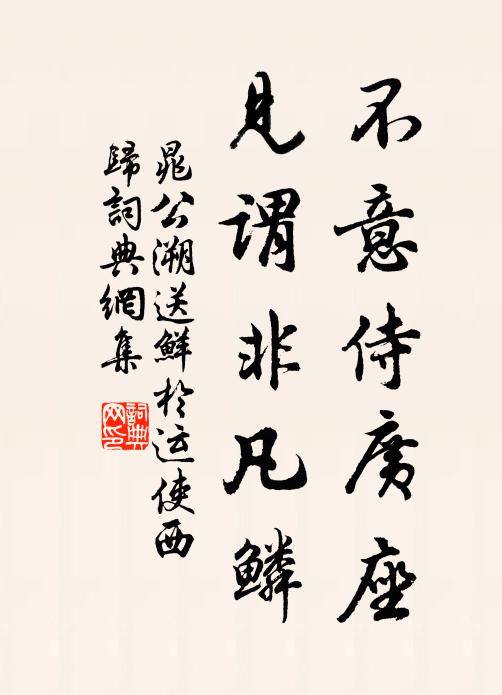 不意侍广座
见谓非凡鳞
晁公溯送鲜于运使西
归词典网集
詞典网印